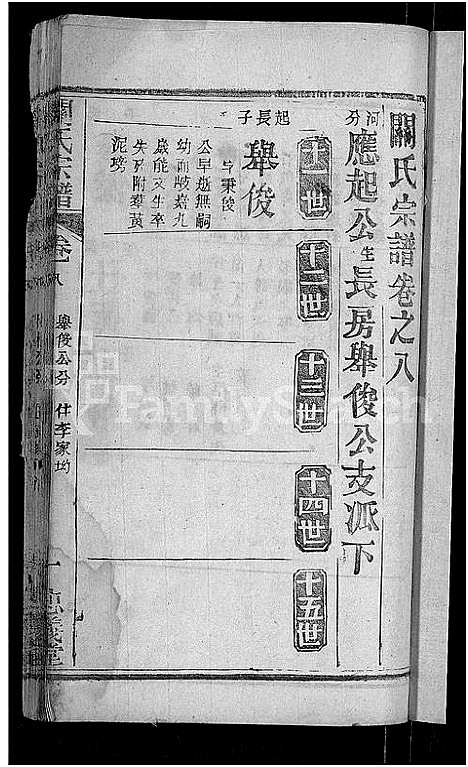 關氏宗譜卷之八
河分
應起公生長房舉俊公支派下
十一世
十二世
十三世
十四世
十五世
起長子
舉俊
号秉俊
公早逝無嗣
幼而岐嶷九
歲能文生卒
失考附葬黄
泥塝
關氏宗譜
卷八
舉俊公分
住李家坳
一
忠義堂
FamilySearch